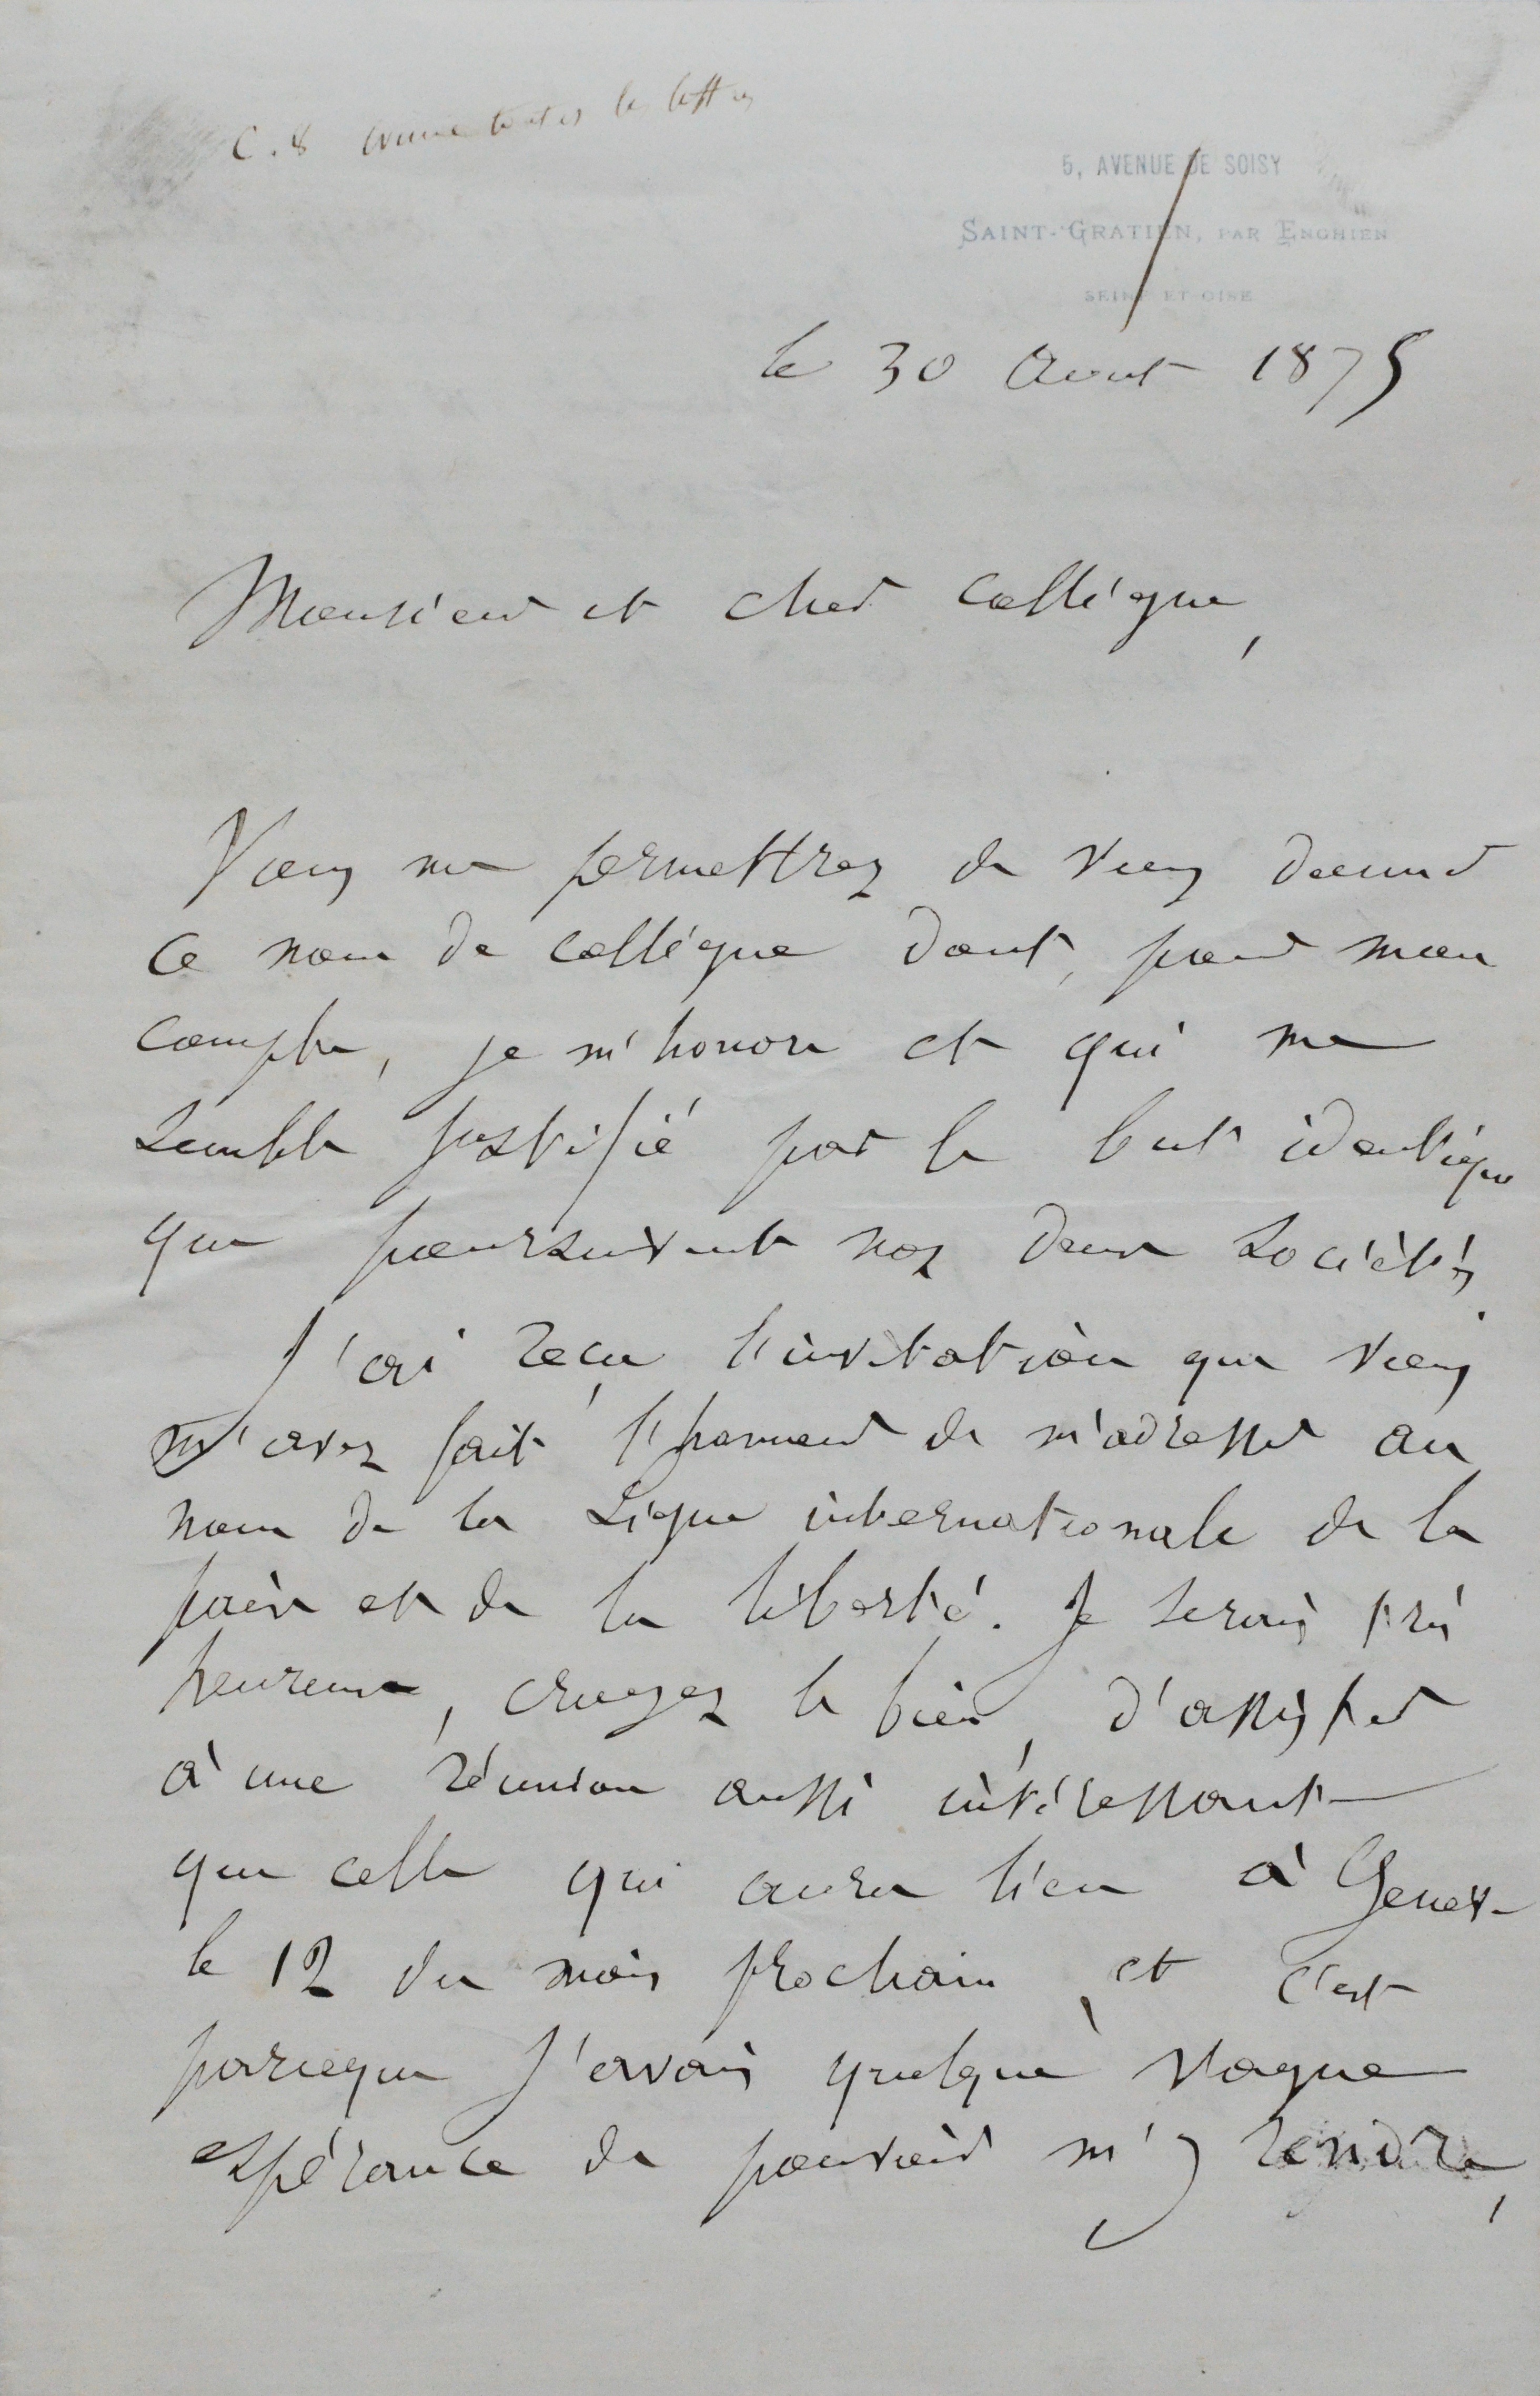 C. 8 comme toutes les lettres
5, AVENUE DE SOISY
SAINT-GRATIEN, PAR ENGHIEN
SEINE ET OISE
le 30 Aout 1875
Monsieur et cher collègue,
Vous me permettrez de vous donner
ce nom de collègue dont, pour mon
compte, je m'honore et qui me
semble justifié par le but identique
que poursuivent nos deux sociétés.
J'ai reçu l'invitation que vous
m'avez fait l'honneur de m'adresser au
nom de la Ligue internationale de la
paix et de la liberté. Je serais très
heureux, croyez le bien, d'assister
à une réunion aussi intéressante
que celle qui aura lieu à Genève
le 12 du mois prochain, et c'est
parceque j'avais quelque vague
espérance de pouvoir m'y rendre,